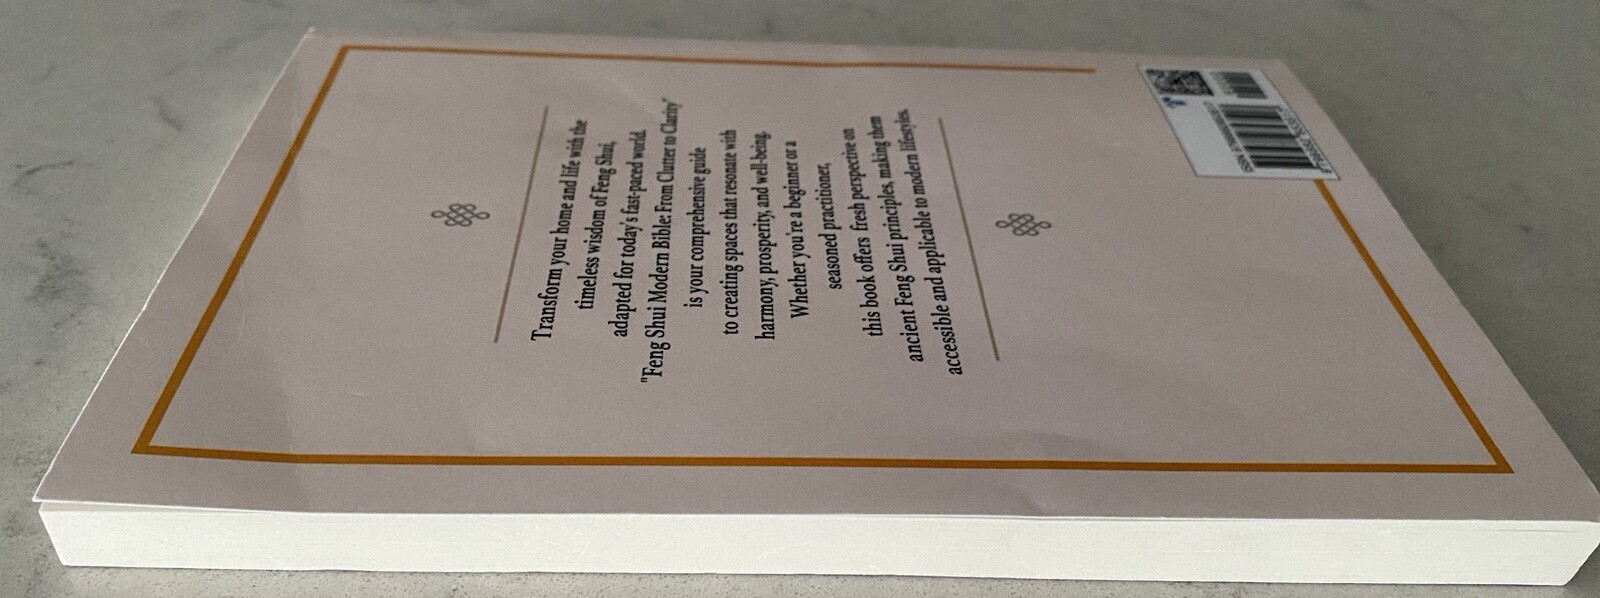 Transform your home and life with the
timeless wisdom of Feng Shui,
adapted for today's fast-paced world.
"Feng Shui Modern Bible: From Clutter to Clarity"
is your comprehensive guide
to creating spaces that resonate with
harmony, prosperity, and well-being.
Whether you're a beginner or a
seasoned practitioner,
this book offers fresh perspective on
ancient Feng Shui principles, making them
accessible and applicable to modern lifestyles.
ISBN